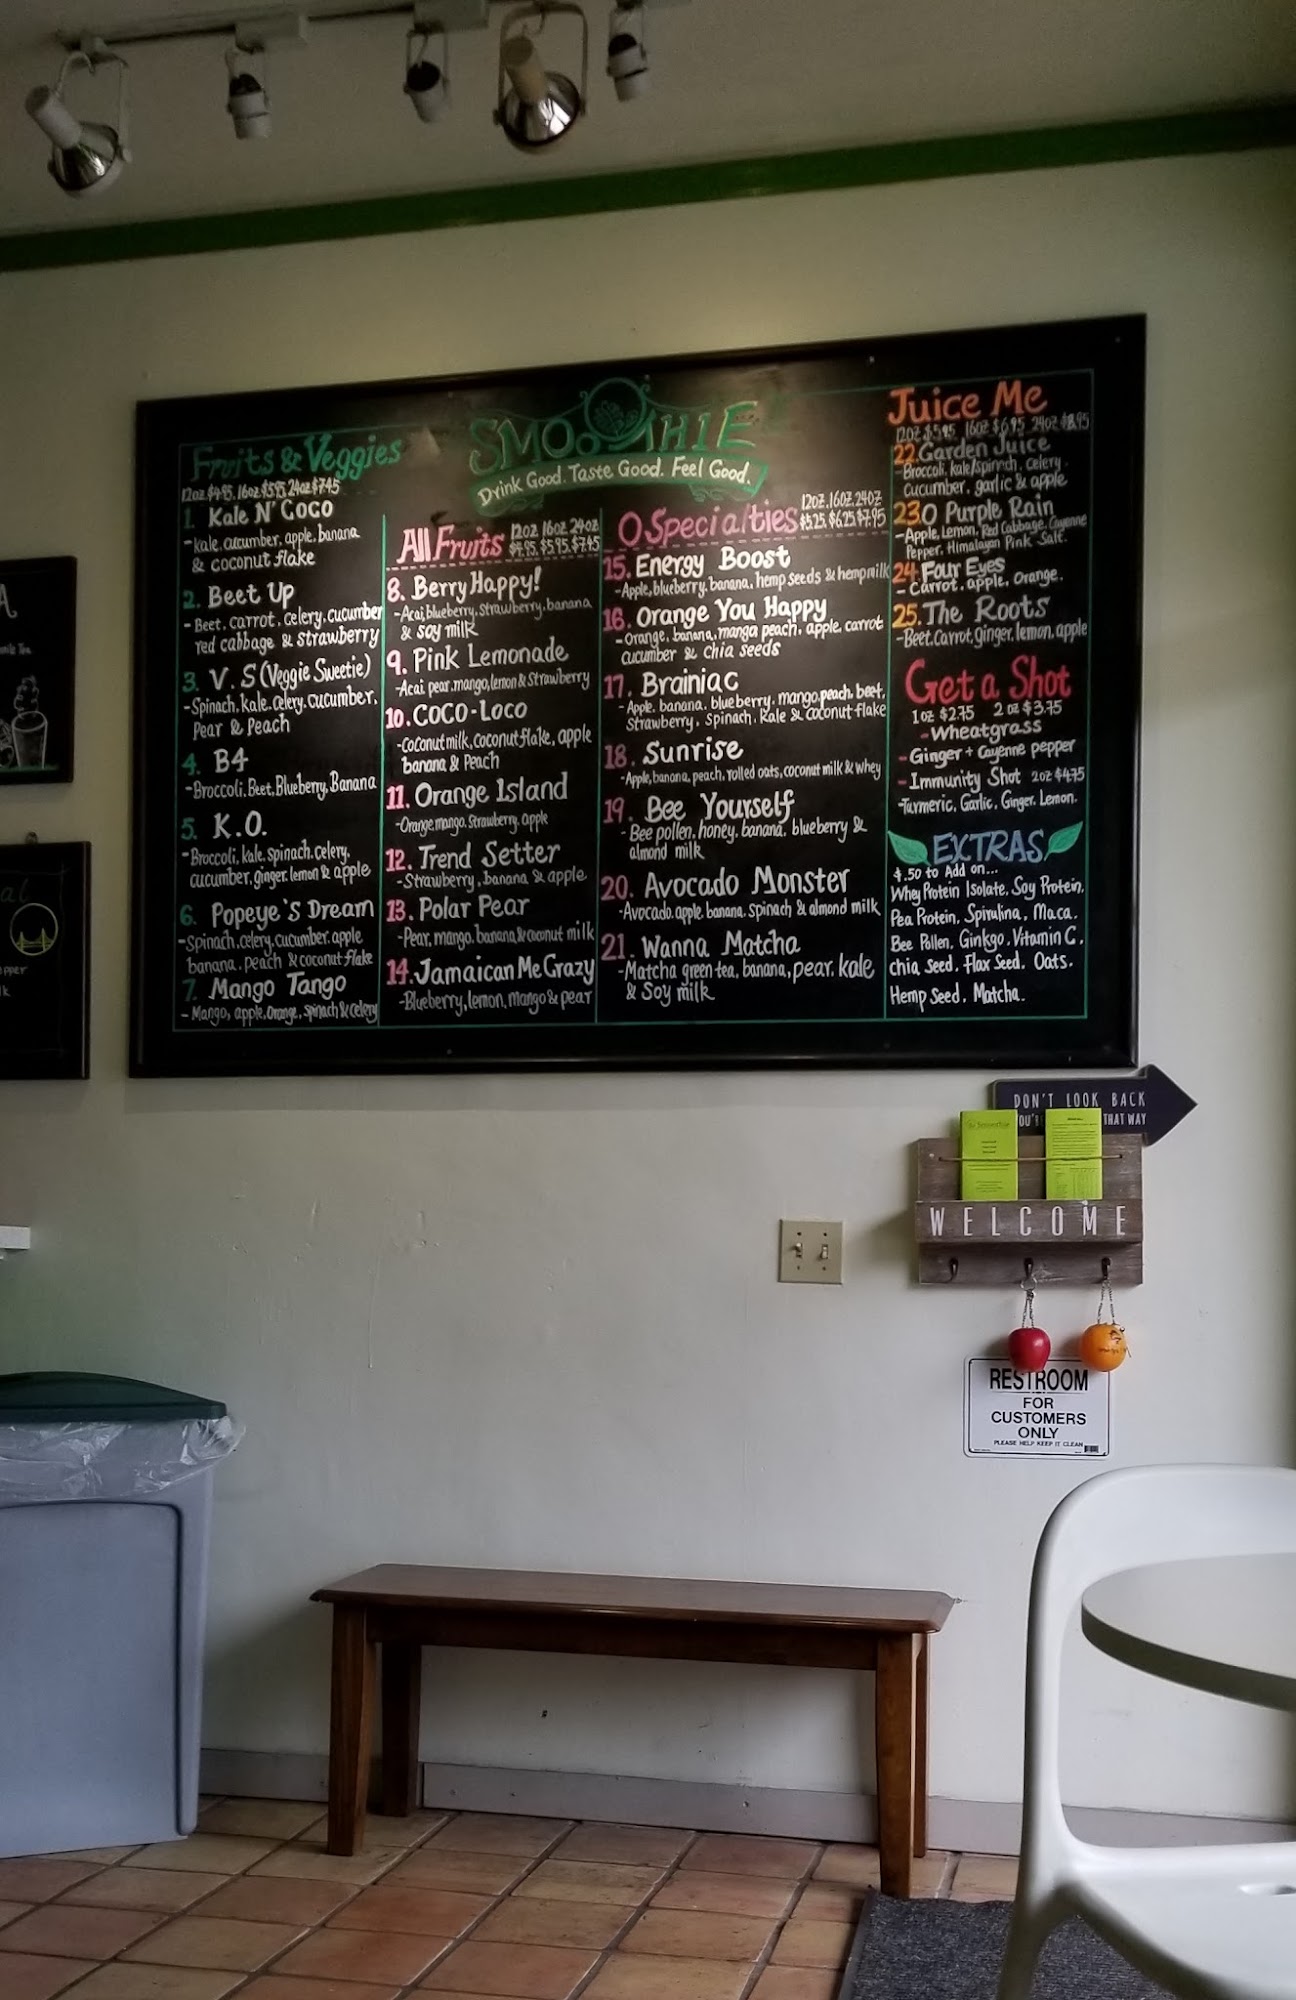 SMOOTHIE
Drink Good. Taste Good. Feel Good.
Fruits & Veggies
12oz $4.95, 16oz $5.95 24oz $7.45
1. Kale N' Coco
-kale, cucumber, apple, banana
& coconut flake
2. Beet Up
-Beet, carrot, celery, cucumber
red cabbage & strawberry
3. V.S (Veggie Sweetie)
-Spinach, kale, celery, cucumber,
Pear & Peach
4. B4
-Broccoli, Beet, Blueberry, Banana
5. K.O.
-Broccoli, kale, spinach, celery,
cucumber, ginger, lemon & apple
6. Popeye's Dream
-Spinach, celery, cucumber, apple
banana, peach & coconut flake
7. Mango Tango
-Mango, apple, Orange, spinach & celery
All Fruits
12oz 16oz 24oz
$4.95, $5.95, $7.45
8. Berry Happy!
-Acai, blueberry, strawberry, banana
& soy milk
9. Pink Lemonade
-Acai, pear, mango, lemon & Strawberry
10. COCO-Loco
-Coconut milk, coconut flake, apple
banana & Peach
11. Orange Island
-Orange, mango, Strawberry, apple
12. Trend Setter
-Strawberry, banana & apple
13. Polar Pear
-Pear, mango, banana, & coconut milk
14. Jamaican Me Crazy
-Blueberry, lemon, mango & pear
O Specialties
12oz, 16oz, 24oz
$5.25, $6.25 $7.95
15. Energy Boost
-Apple, blueberry, banana, hemp seeds & hempmilk
16. Orange You Happy
-Orange, banana, mango, peach, apple, carrot
cucumber & chia seeds
17. Brainiac
-Apple, banana, blueberry, mango, peach, beet,
Strawberry, spinach, kale & coconut flake
18. Sunrise
-Apple, banana, peach, rolled oats, coconut milk & whey
19. Bee Yourself
-Bee pollen, honey, banana, blueberry &
almond milk
20. Avocado Monster
-Avocado, apple, banana, spinach & almond milk
21. Wanna Matcha
-Matcha green tea, banana, pear, kale
& Soy milk
Juice Me
12oz $5.95 16oz $6.95 24oz $8.95
22. Garden Juice
-Broccoli, kale/spinach, celery,
cucumber, garlic & apple
23. O Purple Rain
-Apple, Lemon, Red Cabbage, Cayenne
Pepper, Himalayan Pink Salt.
24. Four Eyes
-Carrot, apple, orange.
25. The Roots
-Beet, Carrot, ginger, lemon, apple
Get a Shot
1oz $2.75 2oz $3.75
-Wheatgrass
-Ginger + Cayenne pepper
-Immunity Shot 2oz $4.75
-Turmeric, Garlic, Ginger, Lemon.
EXTRAS
$.50 to Add on...
Whey Protein Isolate, Soy Protein,
Pea Protein, Spirulina, Maca,
Bee Pollen, Ginkgo, Vitamin C,
chia seed, Flax Seed, Oats,
Hemp Seed, Matcha.
DON'T LOOK BACK
THAT WAY
WELCOME
RESTROOM
FOR
CUSTOMERS
ONLY
PLEASE HELP KEEP IT CLEAN